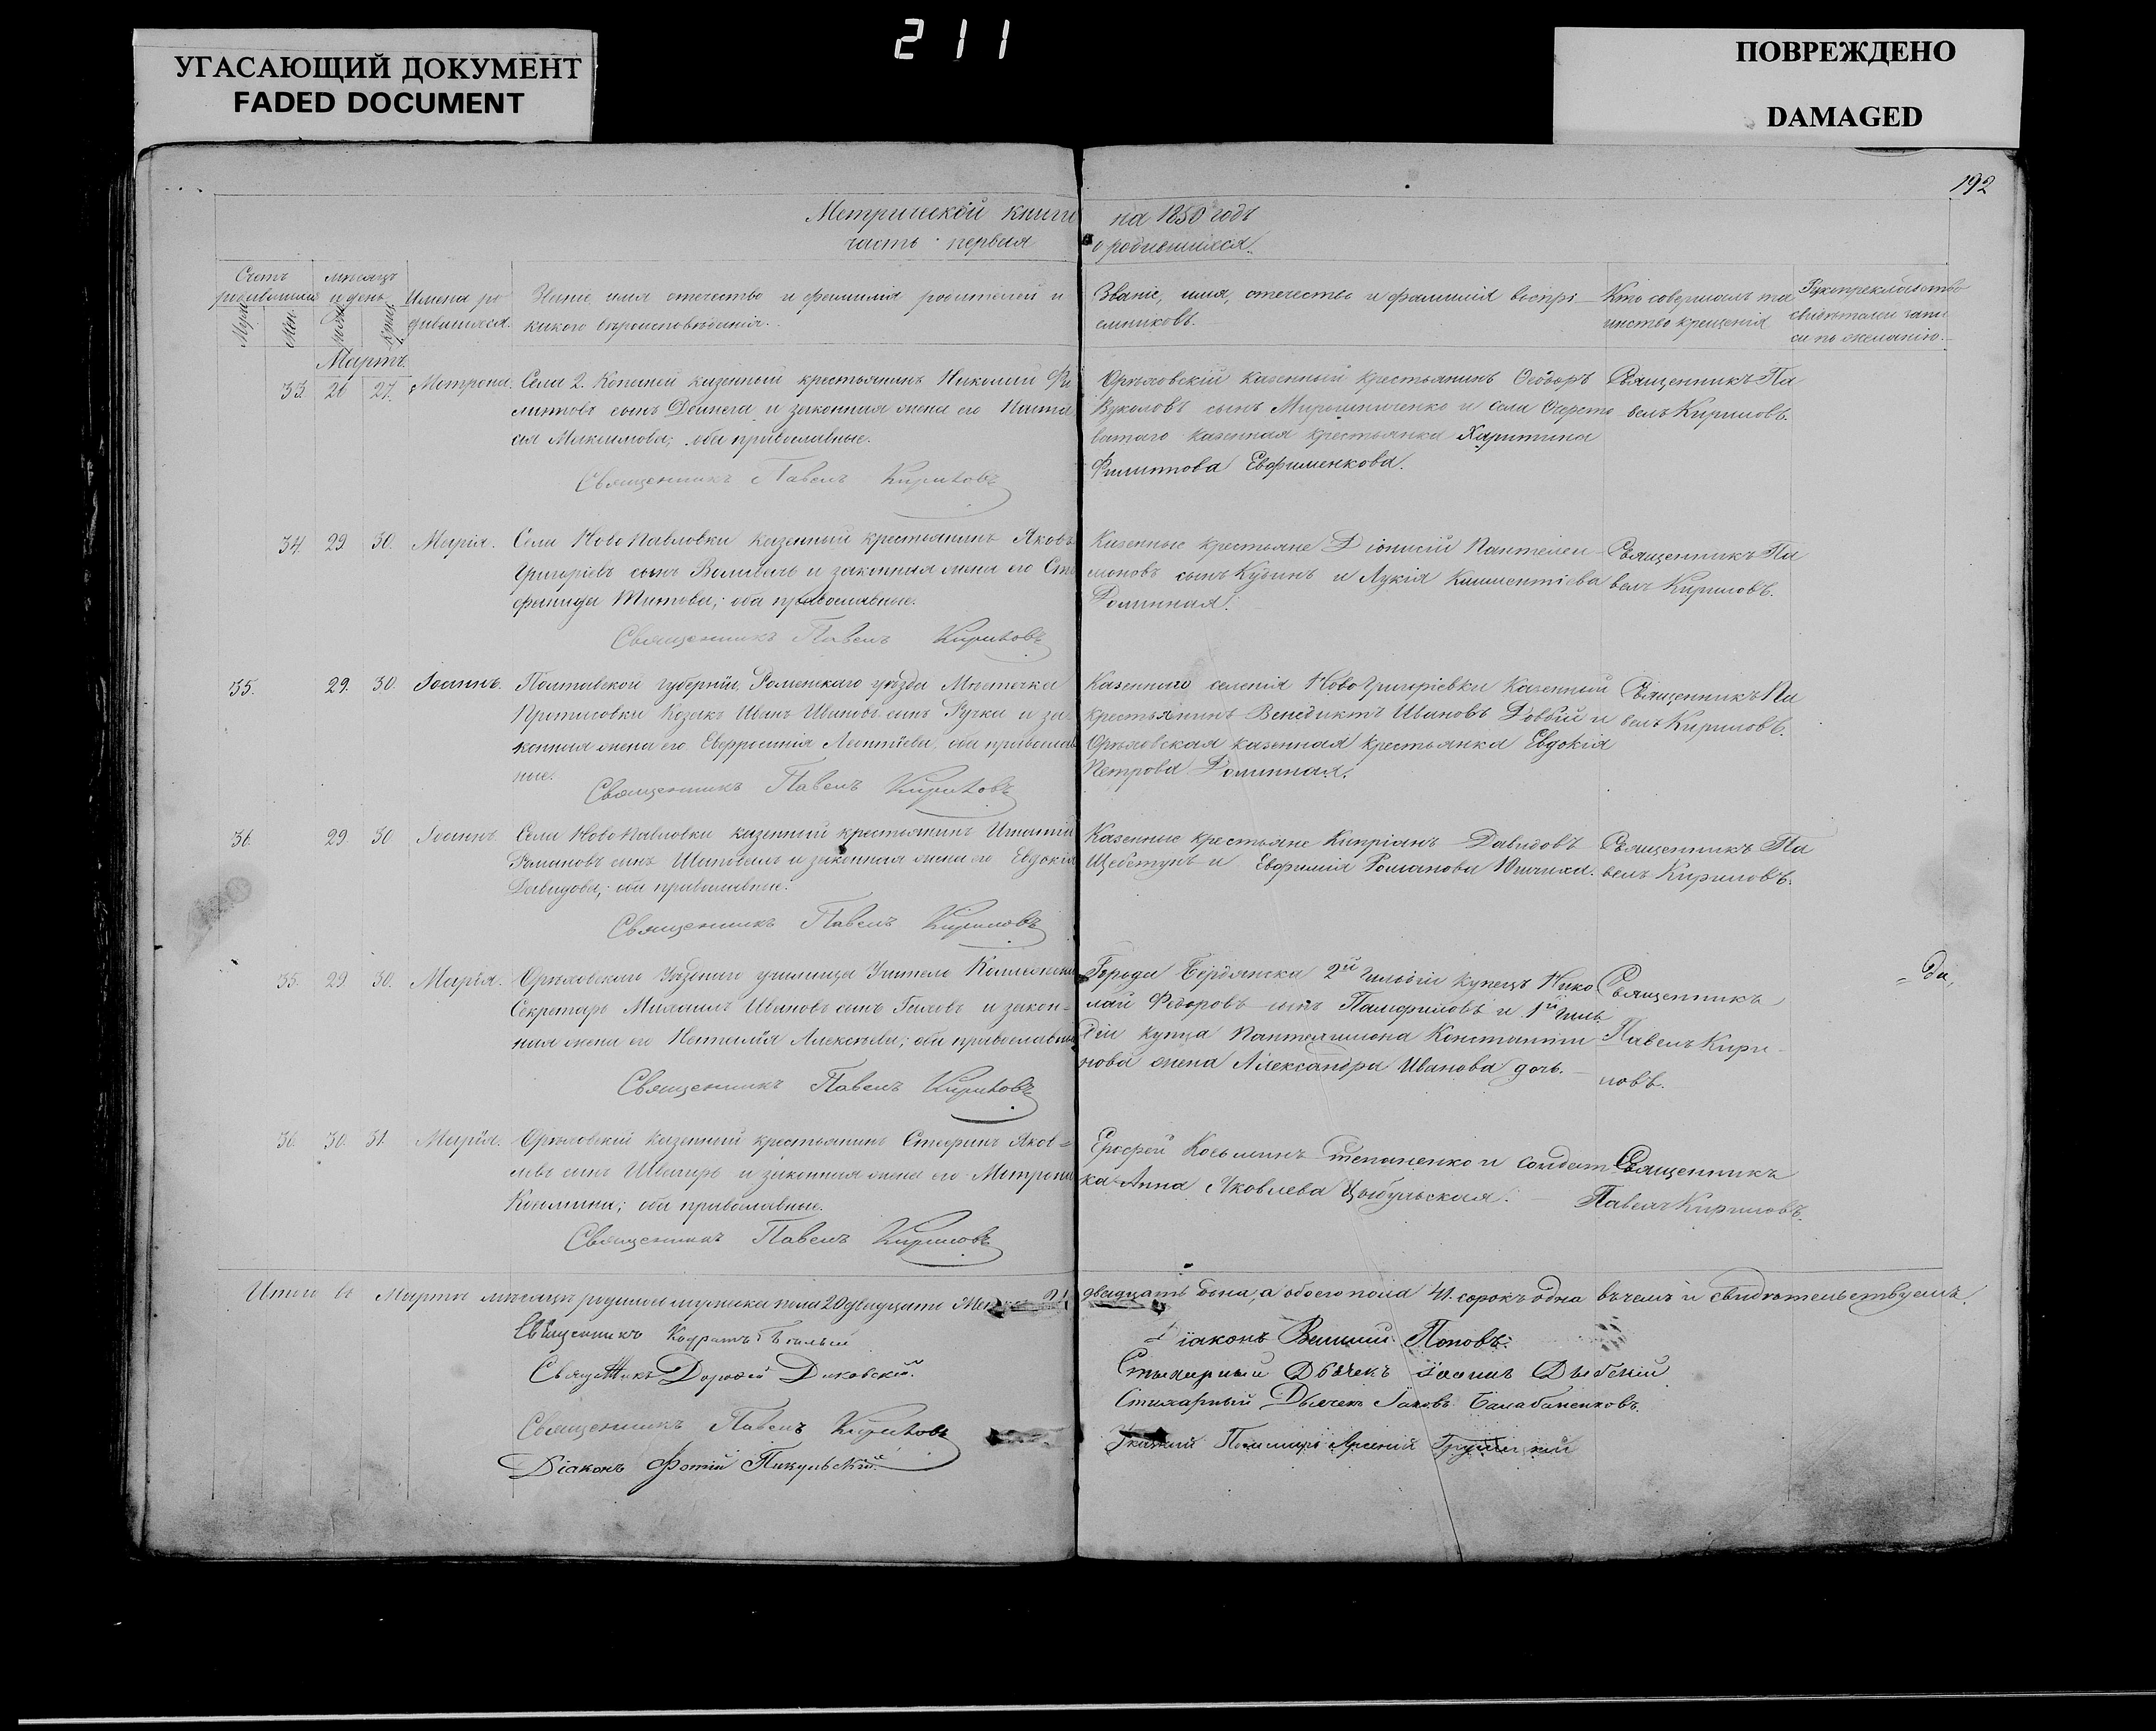 211
УГАСАЮЩИЙ ДОКУМЕНТ
FADED DOCUMENT
ПОВРЕЖДЕНО
DAMAGED
192
Метрической книги на 1850 годъ
часть первая о родившихся.
Счетъ родившихся
Муж.
Жен.
мѣсяцъ и день
Имена ро
дившихся.
Званіе, имя отечество и фамилія родителей и
какого вѣроисповѣданія.
Званіе, имя, отечество и фамилія воспрі
емниковъ.
Кто совершалъ та
инство крещенія
Рукоприкладство
свидѣтелей запи
си по желанію.
Мартъ.
33. 26 27. Матрона.
Села 2. Копаней казенный крестьянинъ Николай Фи
липповъ сынъ Дейнега и законная жена его Наста
сія Максимова; оба православные.
Священникъ Павелъ Кириловъ
Орѣховскій казенный крестьянинъ Ѳеодоръ
Вуколовъ сынъ Мирошниченко и села Очерето
ватаго казенная крестьянка Харитина
Филиппова Евфименкова.
Священникъ Па
велъ Кириловъ.
34. 29. 30. Марія.
Села НовоПавловки казенный крестьянинъ Яковъ
Григорьевъ сынъ и законная жена его Сте
фанида Титова; оба православные.
Священникъ Павелъ Кириловъ
Казенные крестьяне Діонисій Пантелеи
моновъ сынъ Кубинъ и Лукія Климентіева
Долинная.
Священникъ Па
велъ Кириловъ.
35. 29. 30. Іоаннъ.
Полтавской губерніи, Роменскаго уѣзда Мѣстечка
Козакъ Иванъ Ивановъ сынъ Ручка и за
конная жена его Евфросинія Леонтіева, оба православ
ные.
Священникъ Павелъ Кириловъ
Казеннаго селенія НовоГригорьевки Казенный
крестьянинъ Венедиктъ Ивановъ Довбій и
Орѣховская казенная крестьянка Евдокія
Петрова Долинная.
Священникъ Па
велъ Кириловъ.
36. 29. 30 Іоаннъ.
Села НовоПавловки казенный крестьянинъ Игнатій
Романовъ сынъ Шаповалъ и законная жена его Евдокія
Давидова; оба православные.
Священникъ Павелъ Кириловъ
Казенные крестьяне Кипріанъ Давидовъ
Щебетунъ и Евфимія Романова
Священникъ Па
велъ Кириловъ.
35. 29. 30. Марія.
Орѣховскаго Уѣзднаго училища Учитель Коллежскій
Секретарь Михаилъ Ивановъ сынъ и закон=
ная жена его Наталія Алексѣева; оба православные
Священникъ Павелъ Кириловъ
Города Бердянска 2й гильдіи купецъ Нико
лай Ѳедоровъ сынъ Памфиловъ и 1й гиль
діи купца Пантелеимона Константи
нова жена Александра Иванова дочь.
Священникъ
Павелъ Кири
ловъ.
36. 30. 31. Марія.
Орѣховскій казенный крестьянинъ Стефанъ Яков=
левъ сынъ и законная жена его Матрона
Космина; оба православные.
Священникъ Павелъ Кириловъ
Ерофей Косьминъ Степаненко и солдат
ка Анна Яковлева Цыбульская.
Священникъ
Павелъ Кириловъ.
Итого въ Мартѣ мѣсяцѣ родилось мужеска пола 20 двадцать 21 двадцать одна, а обоего пола 41. сорокъ одна въ чемъ и свидѣтельствуемъ.
Священникъ Кодратъ Бѣлый
Священникъ Дорофей Диковскій.
Священникъ Павелъ Кириловъ
Діаконъ Фотій Пикульскій
Діаконъ Василій Поповъ.
Стихарный Дьячекъ Іоаннъ
Стихарный Дьячекъ Іаковъ Балабаненковъ.
Пономарь Арсеній